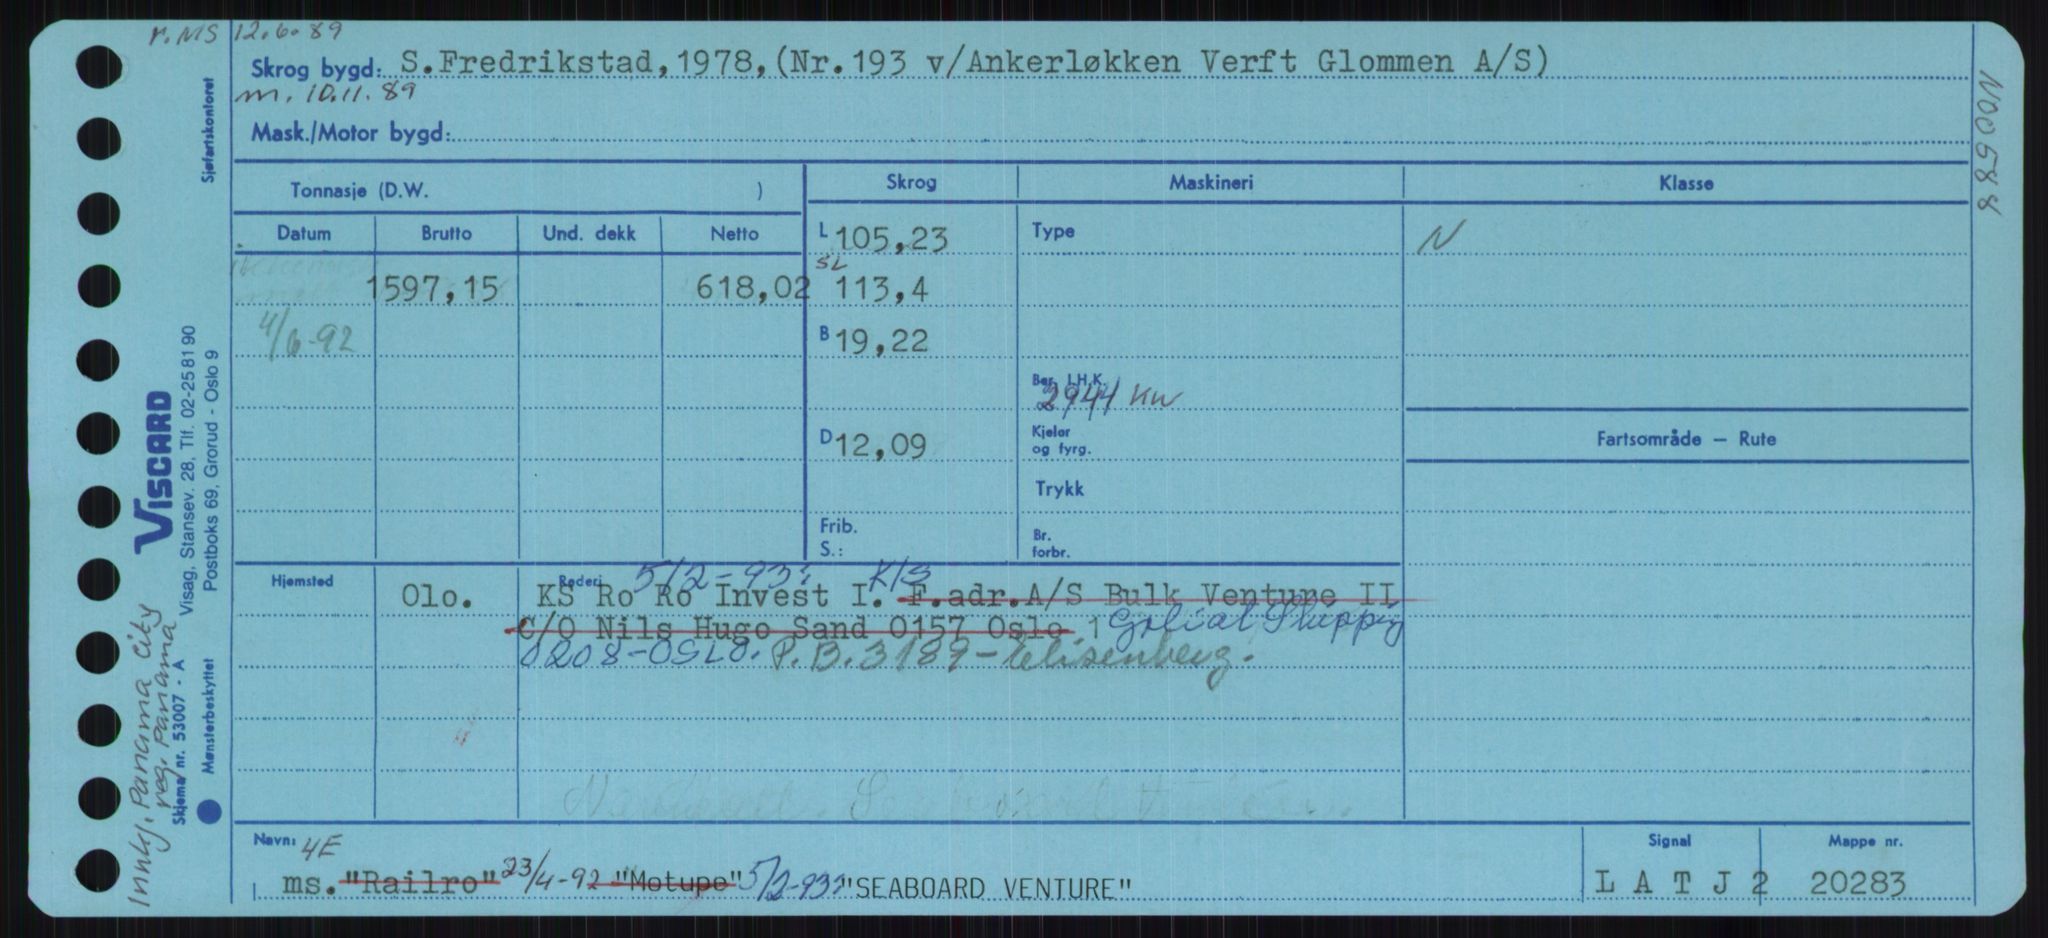 r. MS 12.6.89
Skrog bygd: S.Fredrikstad, 1978, (Nr. 193 v/Ankerløkken Verft Glommen A/S)
m. 10.11.89
Mask./Motor bygd:
Tonnasje (D.W. )
Skrog Maskineri Klasse
Datum Brutto Und. dekk Netto
L 105,23 Type N
1597,15 618,02 SL 113,4
4/6-92 B 19,22
Ber. I.H.K. 2944 KW
D 12,09 Kjeler og fyrg. Fartsområde – Rute
Trykk
Frib. S.: Br. forbr.
Hjemsted Rederi 5/2-93: K/S
Olo. KS Ro Ro Invest I. F.adr.A/S Bulk Venture II
C/O Nils Hugo Sand 0157 Oslo. 1 Goliat Shipping
0208-OSLO. P.B. 3189 - Elisenberg.
Navn: 4E Signal Mappe nr.
ms. "Railro" 23/4-92 "Motupe" 5/2-93: "SEABOARD VENTURE" L A T J 2 20283
Innkj. Panama City
reg. Panama
VISCARD
Skjema nr. 53007 - A Visag, Stansev. 28, Tlf. 02-25 81 90
Mønsterbeskyttet Postboks 69, Grorud - Oslo 9
Sjøfartskontoret
N00588